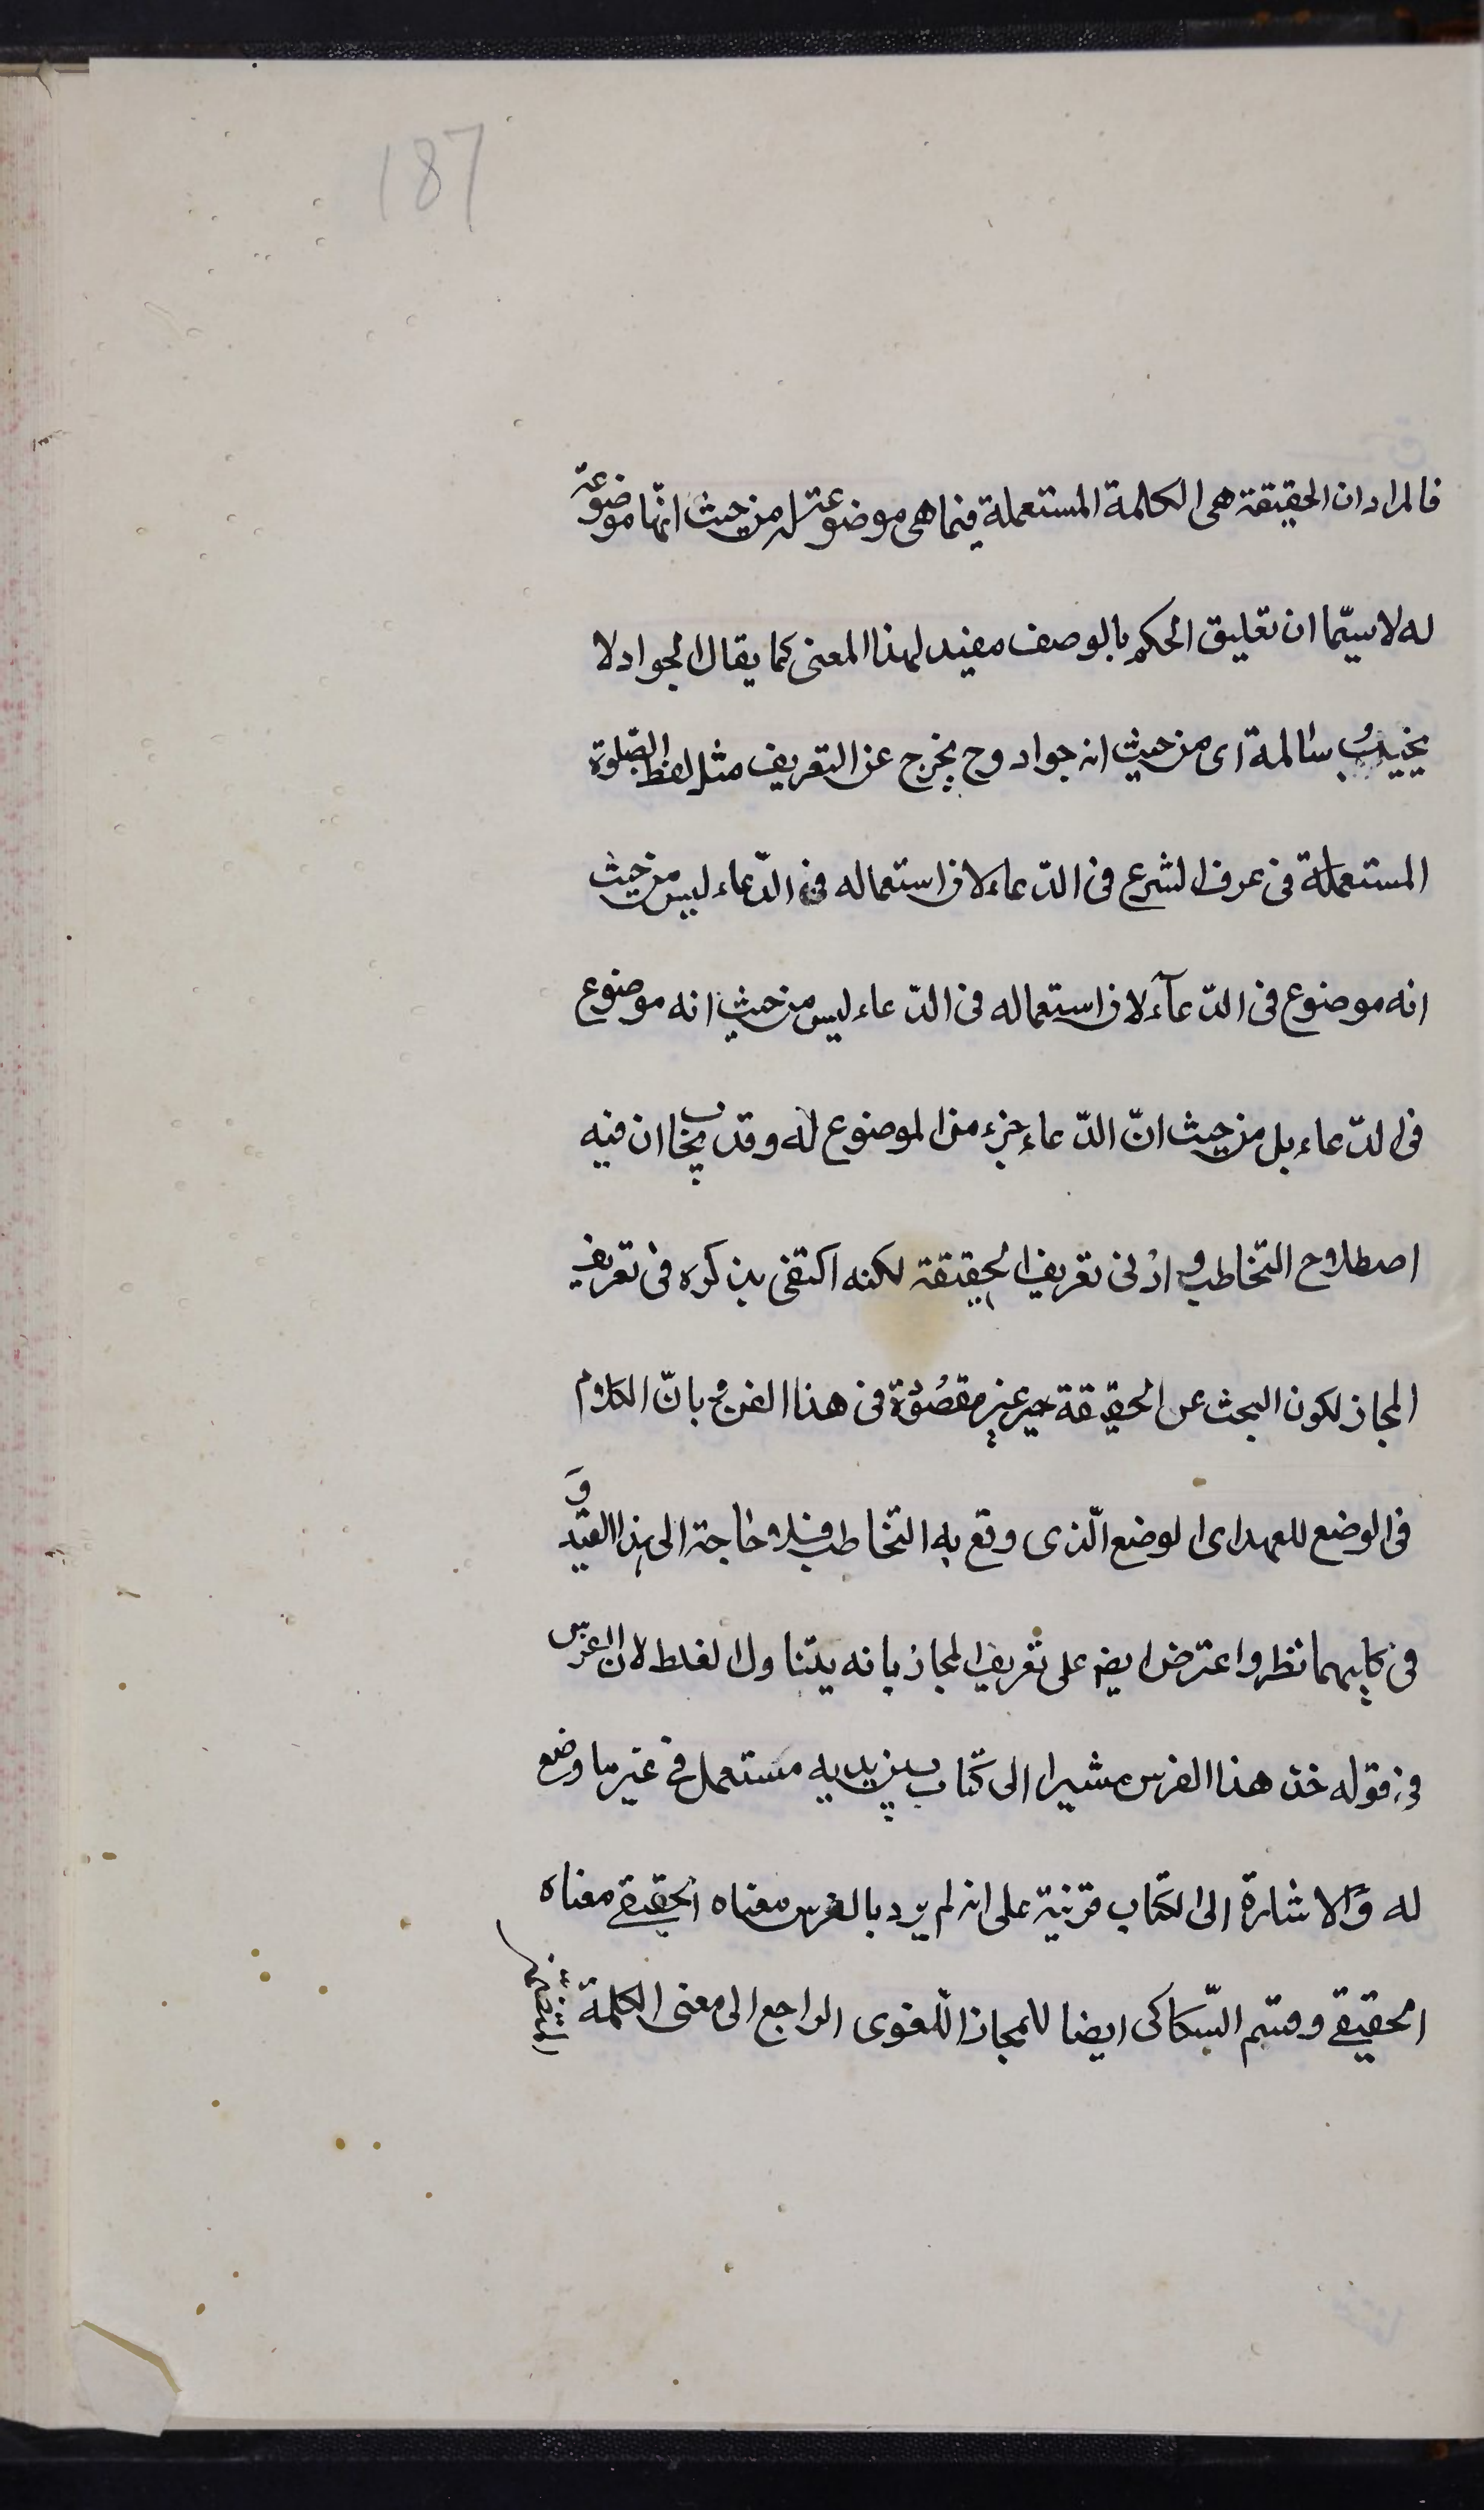 187
فالمراد ان الحقيقة هى الكلمة المستعملة فيما هى موضوعة له من حيث انّها موضوعة
له لا سيّما ان تعليق الحكم بالوصف مفيد لهذا المعنى كما يقال الجواد لا
يخيبُ سائله اى من حيث انه جواد وح يخرج عن التعريف مثل لفظ الصّلوة
المستعملة فى عرف الشرع فى الدّعاء لان استعماله فى الدّعاء ليس من حيث
انه موضوع فى الدّعآء لان استعماله فى الدّعاء ليس من حيث انه موضوع
فى الدّعاء بل من حيث انّ الدّعاء جزء من الموضوع له وقد يجاب ان فيه
اصطلاح التخاطب مراد فى تعريف الحقيقة لكنه اكتفى بذكره فى تعريف
المجاز لكون البحث عن الحقيقة غير مقصُودة فى هذا الفن وبانّ الكلام
فى الوضع للعهد اى الوضع الّذى وقع به التخاطب فلا حاجة الى هذا القيد وَ
فى كليهما نظر واعترض ايضا على تعريف المجاز بانه يتناول الغلط لان الفرس
فى قوله خذ هذا الفرس مشيرا الى كتاب بين يديه مستعمل فى غير ما وضع
له وَالاشارة الى الكتاب قرينة على انه لم يرد بالفرس معناه الحقيقى معناه
الحقيقى وقسّم السّكاكى ايضا المجاز اللّغوى الراجع الى معنى الكلمة